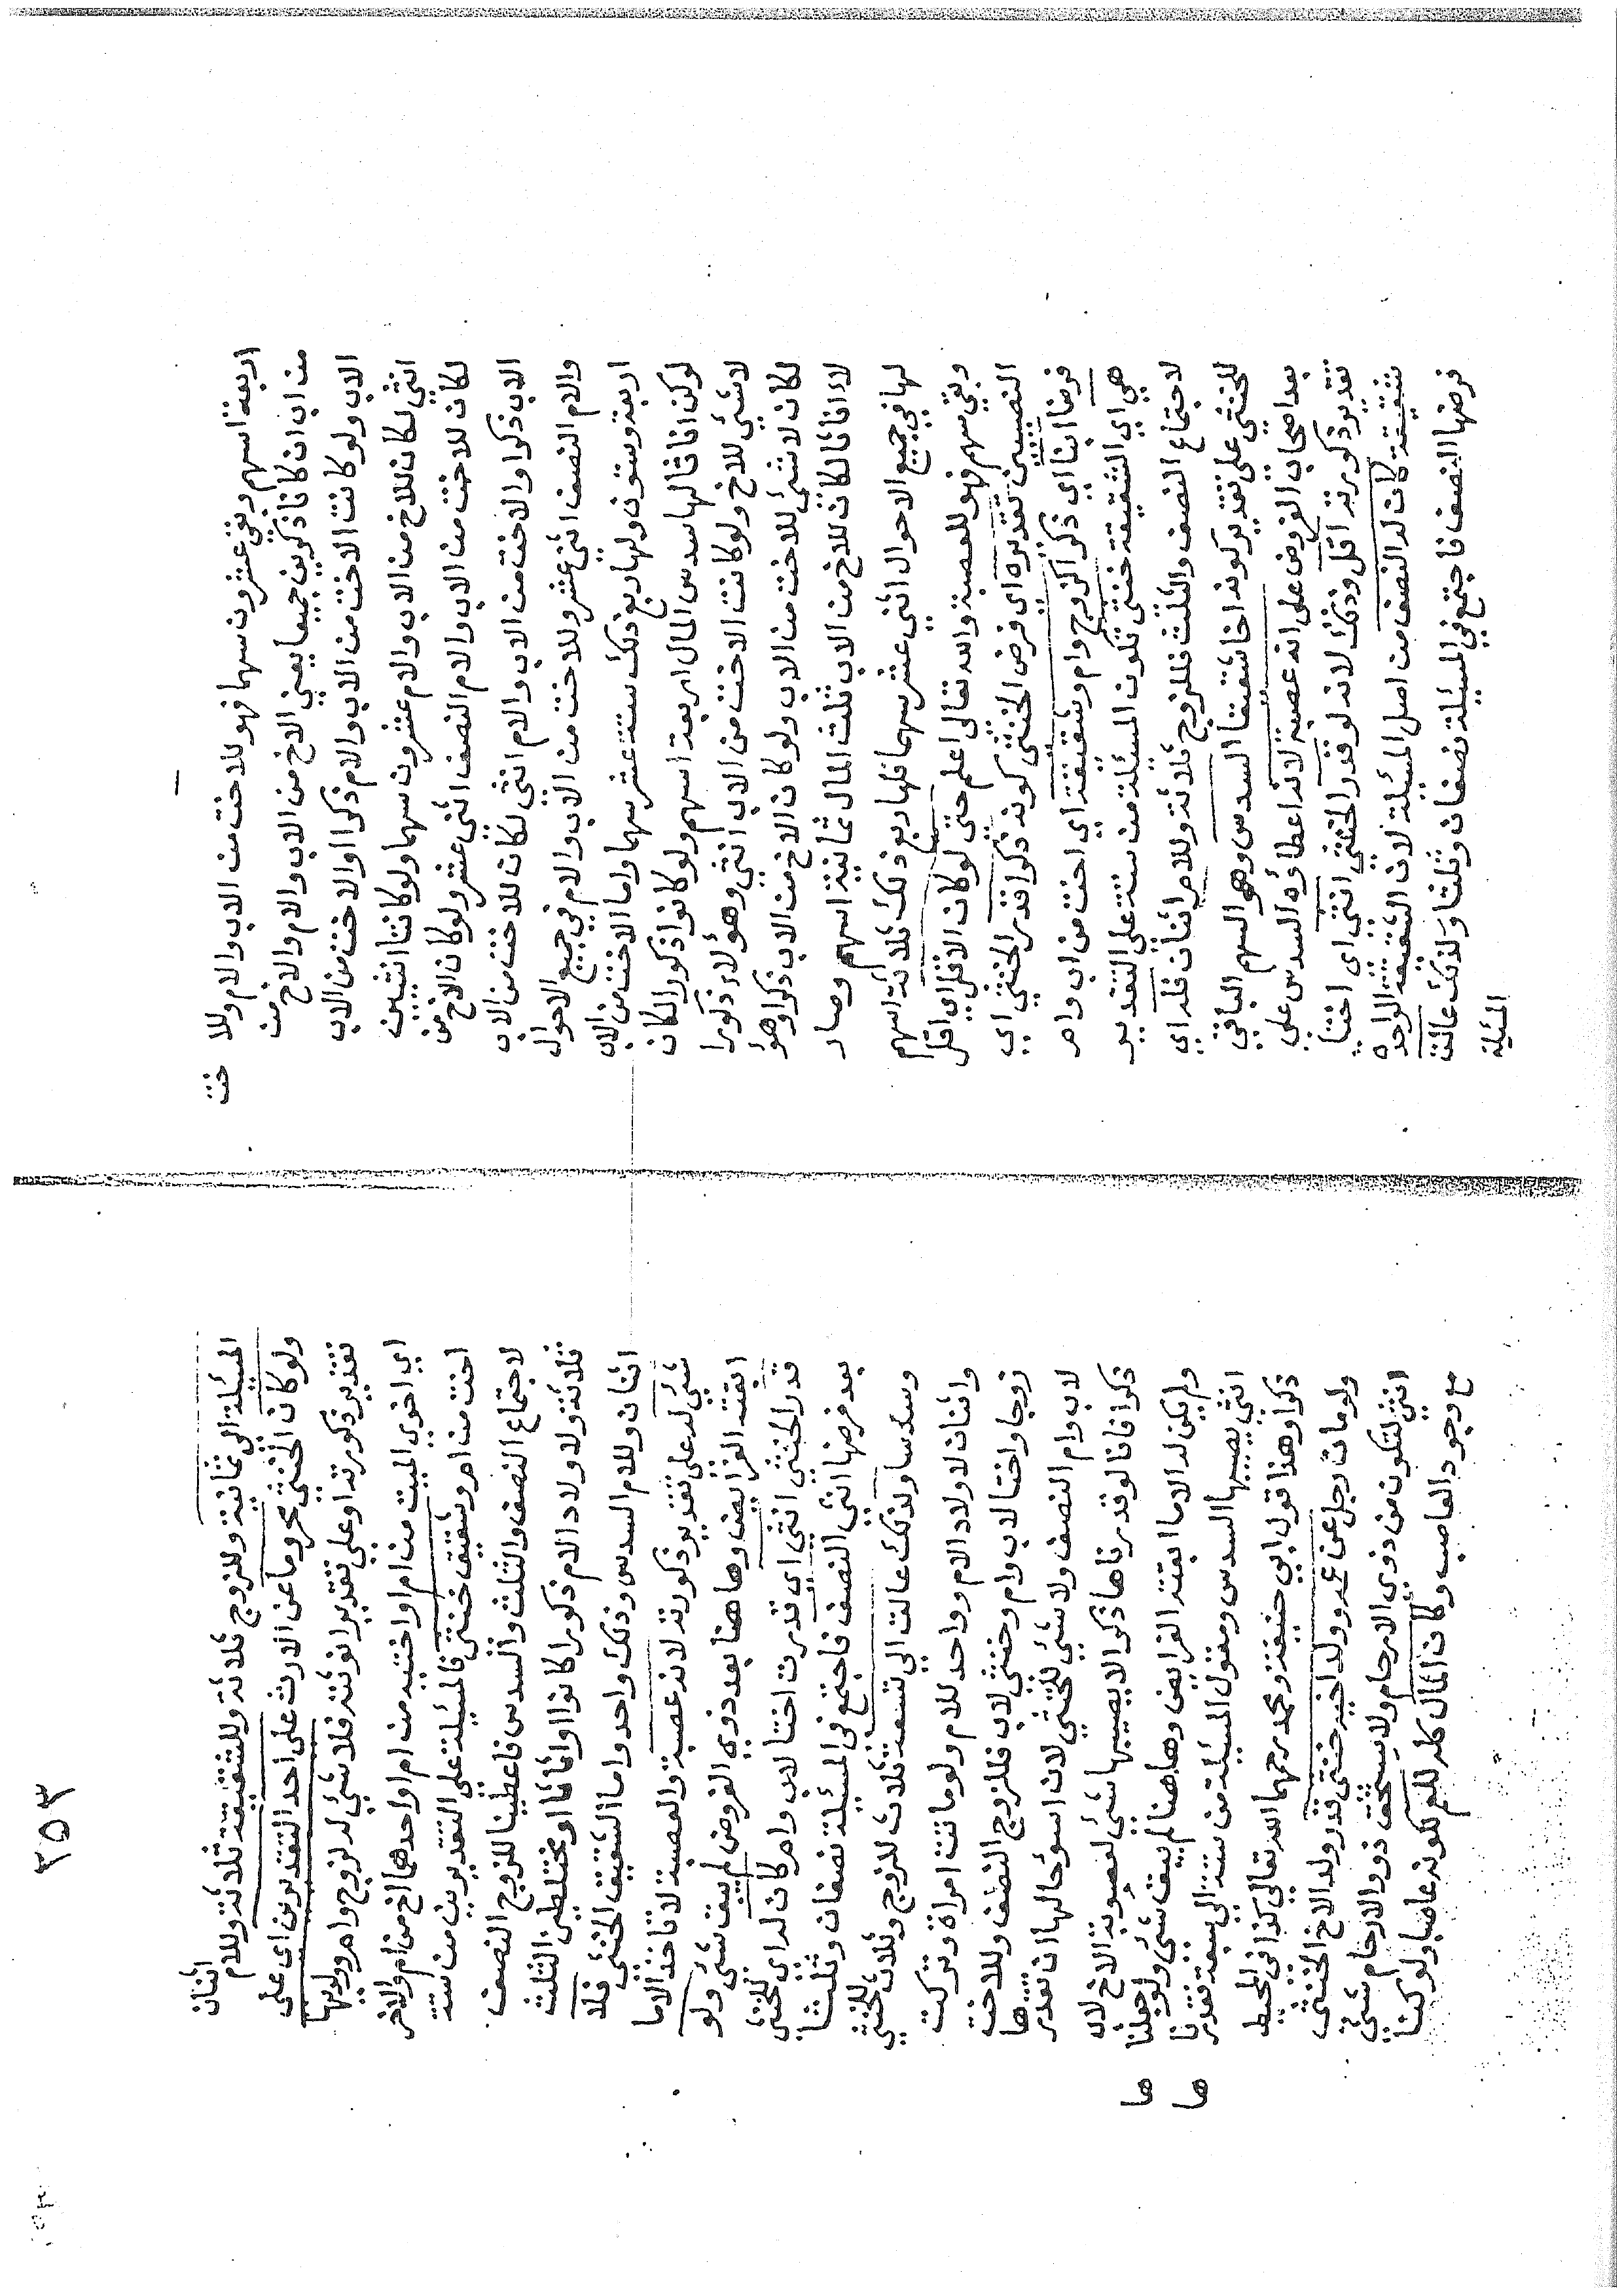 اربعة اسهم وبقي عشرون سهما فهو للاخت من الاب والام وللاخت
من اب ان كانا ذكرين جميعا يعني الاخ من الاب والام والاخ من
الاب ولو كانت الاخت من الاب والام ذكرا والاخت من الاب
انثي لكان للاخ من الاب والام عشرون سهما ولو كانتا انثيين
لكان للاخت من الاب والام النصف اثني عشر ولو كان الاخ من
الاب ذكرا والاخت من الاب والام انثي لكان للاخت من الاب
والام النصف اثني عشر وللاخت من الاب والام في جميع الاحوال
اربعة وستون ولها ربع ذلك ستة عشر سهما واما الاخت من الاب
لو كن اناثا لها سدس المال اربعة اسهم ولو كانوا ذكورا لكان
لا شيء للاخ ولو كانت الاخت من الاب انثي وهؤلاء ذكورا
لكان لا شيء للاخت من الاب ولو كان الاخ من الاب ذكرا وهؤ
لاء اناثا لكان للاخ من الاب ثلث المال ثمانية اسهم وصار
لها في جميع الاحوال اثني عشر سهما فلها ربع ذلك ثلاثة اسهم
وبقي سهم فهو للعصبة والله تعالي اعلم حتي لو كان الاقل اي اقل
النصيبين تقديره اي فرض الخنثي كونه ذكرا قدر الخنثي اي
فرضا ابنا اي ذكرا كزوج وام وشقيقة اي اخت من اب وام
هي اي الشقيقة خنثي تكون المسئلة من ستة علي التقدير
لاجتماع النصف والثلث فللزوج ثلاثة وللام اثنان فله اي
للخنثي علي تقدير كونه اخا شقيقا السدس وهو السهم الباقي
بعد اصحاب الفروض علي انه عصبة لانه اعطاؤه السدس علي
تقدير ذكورته اقل وذلك لانه لو قدر الخنثي انثي اي اختا
شقيقة كان له النصف من اصل المسئلة لان الشقيقة الواحدة
فرضها النصف فاجتمع في المسئلة نصفان وثلثا ولذلك عالت
المسئلة
٣٥٣
المسئلة الي ثمانية وللزوج ثلاثة وللشقيقة ثلاثة وللام اثنان
ولو كان الخنثي محروما عن الارث علي احد التقديرين اي علي
تقدير ذكورته او علي تقدير انوثته فلا شي له كزوج وام وولديها
اي اخوي الميت من ام او اختيه من ام او احدهما اخ من ام والاخر
اخت من ام وشقيق خنثي فالمسئلة علي التقديرين من ستة
لاجتماع النصف والثلث والسدس فاعطينا للزوج النصف
ثلاثة ولاولاد الام ذكورا كانوا او اناثا او مختلطين الثلث
اثنان وللام السدس وذلك واحد واما الشقيق الخنثي فلا
شيء له علي تقدير ذكورته لانه عصبة والعصبة لا تاخذ الا ما
ابقته الفرايض وها هنا بعد ذوي الفروض لم يبق شيء ولو
قدر الخنثي انثي اي قدرت اختا لاب وام كان له اي للخنثي
بعد فرضها انثي النصف فاجتمع في المسئلة نصفان وثلثا
وسدسا ولذلك عالت الي تسعة ثلاث للزوج وثلاث للخنثي
واثنان لاولاد الام وواحد للام ولو ماتت امراة وتركت
زوجا واختا لاب وام وخنثي لاب فللزوج النصف وللاخت
لاب وام النصف ولا شيء للخنثي لان اسوء حالها ان تقدرها
ذكرا فانا لو قدرناها ذكرا لا يصيبها شيء لعصوبة الاخ لانه
ولم يكن له الا ما ابقته الفرايض وها هنا لم يبق شيء ولو جعلناها
انثي يصيبها السدس ومقول المسئلة من ستة الي سبعة فقدرناها
ذكرا وهذا قول ابي حنيفة ومحمد رحمهما الله تعالي كذا في المحيط
ولو مات رجل عن عم وولد اخيه خنثي قدر ولد الاخ الخنثي
انثي لتكون من ذوي الارحام ولا يستحق ذووا الارحام شيئ
مع وجود العاصب وكان المال كله للعم لكونه عاصبا ولو كنا